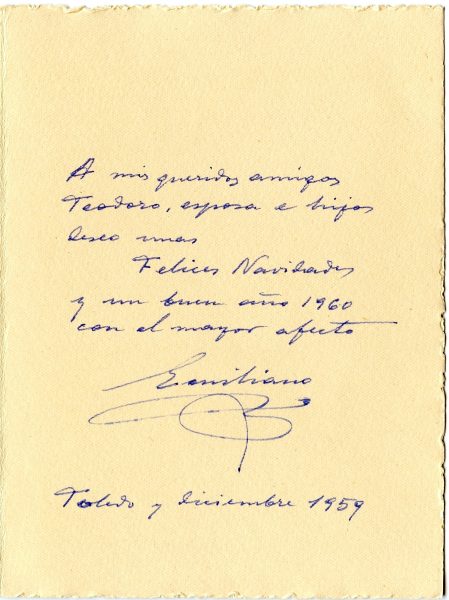 A mis queridos amigos
Teodoro, esposa e hijos
deseo unas
Felices Navidades
y un buen año 1960
con el mayor afecto
Emiliano
Toledo y diciembre 1959